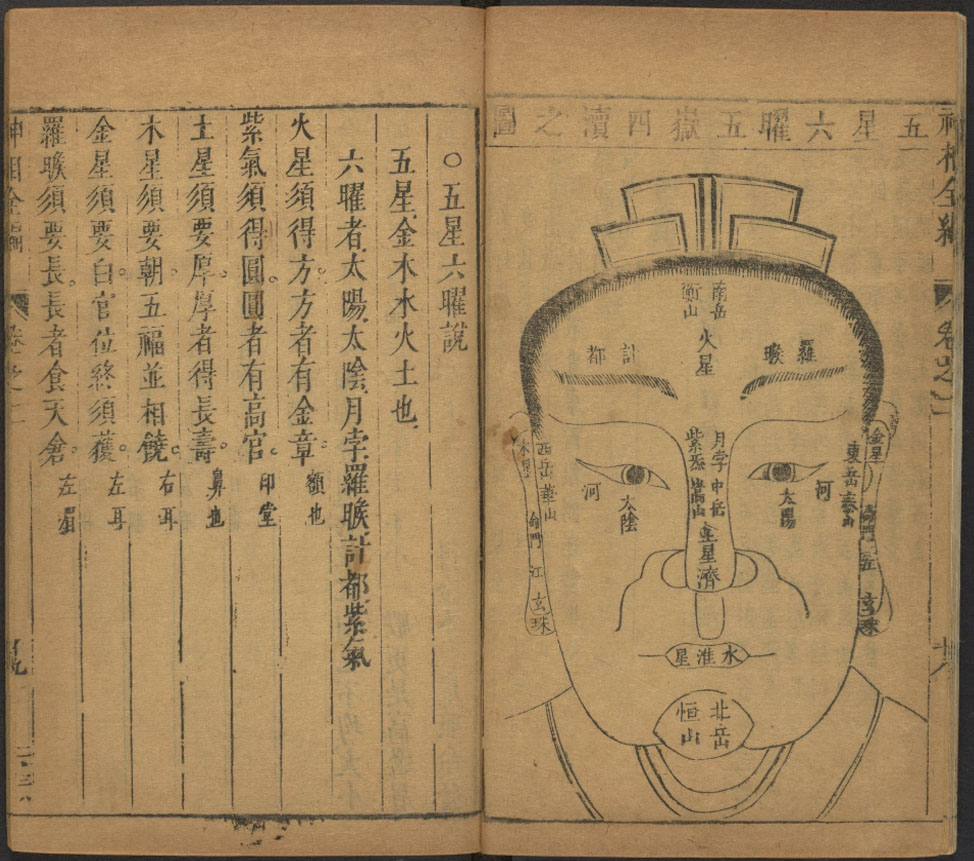 五星六曜五嶽四瀆之圖
神相全編
卷之二
南岳
衡山
火星
羅睺
計都
月孛
紫炁
中岳
嵩山
土星
濟
太陽
太陰
河
河
金星
東岳泰山
命門
江
玄珠
木星
西岳華山
命門
江
玄珠
水淮星
北岳
恒山
○五星六曜說
五星金木水火土也
六曜者太陽太陰月孛羅睺計都紫氣
火星須得方。方者有金章。額也
紫氣須得圓。圓者有高官。印堂
土星須要厚。厚者得長壽。鼻也
木星須要朝。五福並相饒。右耳
金星須要白。官位終須獲。左耳
羅睺須要長。長者食天倉。左眉
神相全編
卷之二